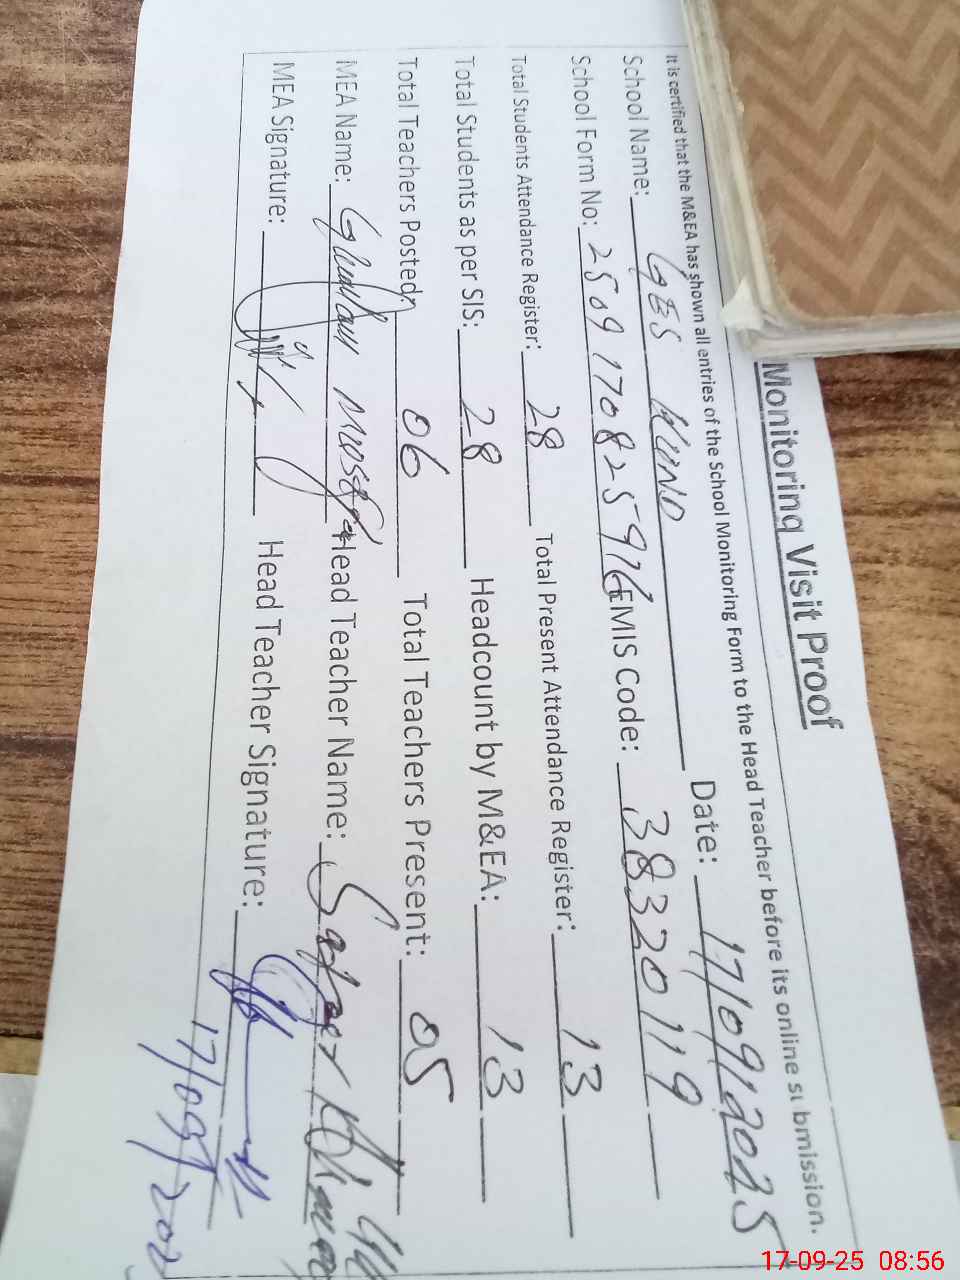 Monitoring Visit Proof
It is certified that the M&EA has shown all entries of the School Monitoring Form to the Head Teacher before its online submission.
School Name: GES KUND Date: 17/09/2025
School Form No: 2509170825976 EMIS Code: 38320119
Total Students Attendance Register: 28 Total Present Attendance Register: 13
Total Students as per SIS: 28 Headcount by M&EA: 13
Total Teachers Posted: 06 Total Teachers Present: 05
MEA Name: Ghulam Mustafa Head Teacher Name:
MEA Signature: Head Teacher Signature:
17/09/202
17-09-25 08:56